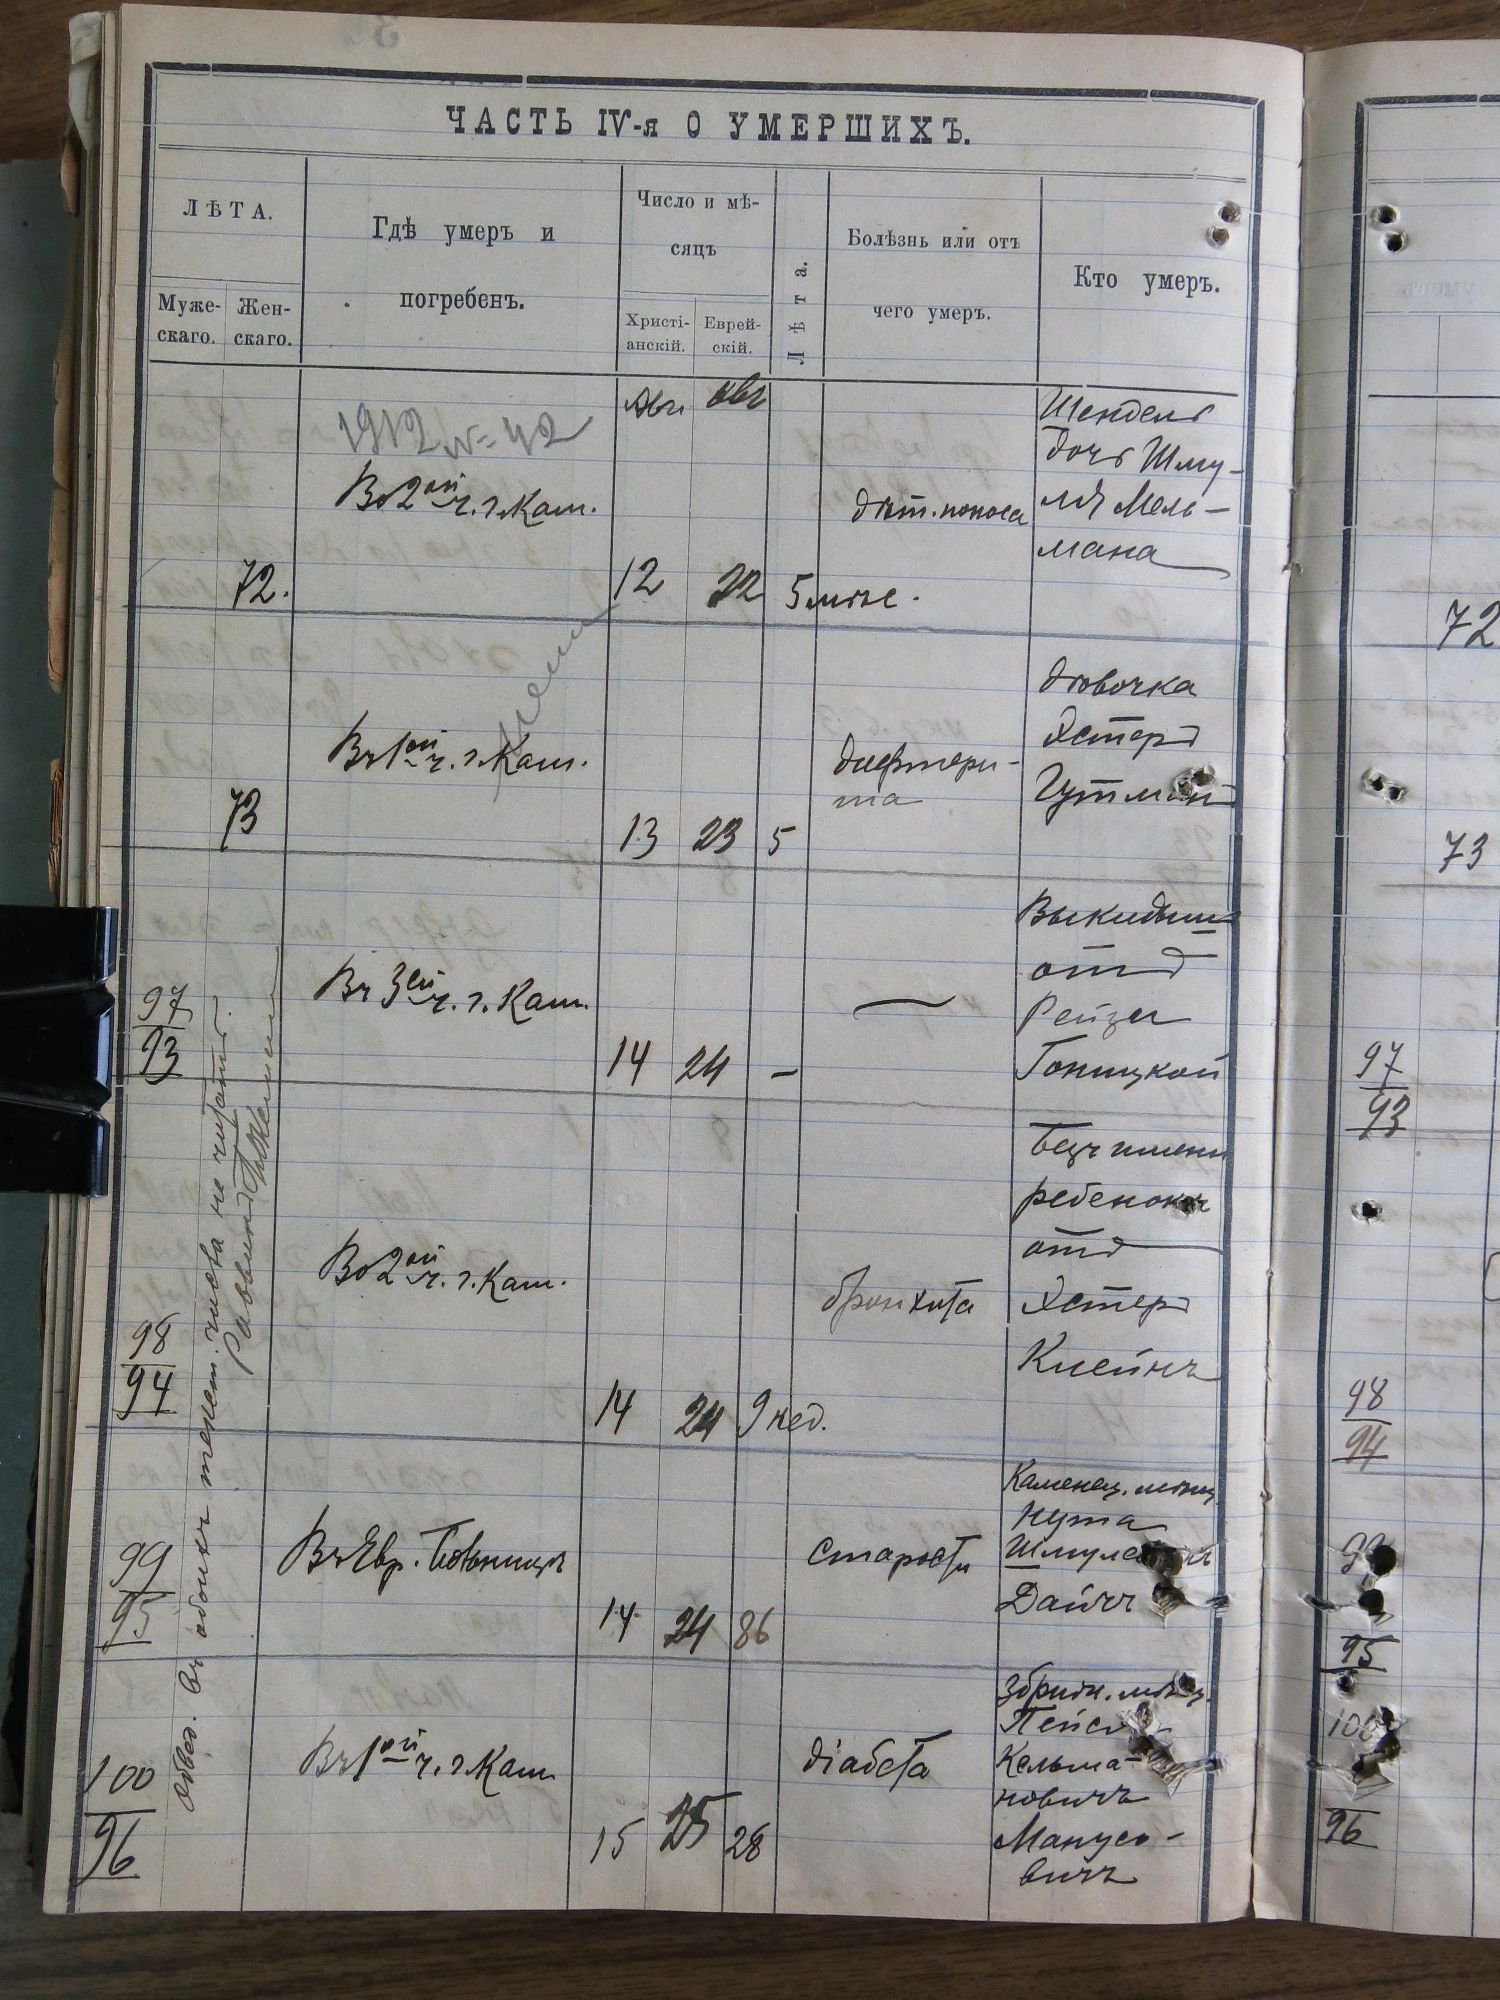 ЧАСТЬ IV-я О УМЕРШИХЪ.
ЛѢТА.
Муже-
скаго.
Жен-
скаго.
Гдѣ умеръ и
погребенъ.
Число и мѣ-
сяцъ
Христі-
анскій.
Еврей-
скій.
Лѣта.
Болѣзнь или отъ
чего умеръ.
Кто умеръ.
1912 N= 42
72.
Во 2ой ч. г. Кам.
12
22
5 мѣс.
дѣт. поноса
Шендель
дочь Шму-
ля Мель-
мана
73
Въ 1ой ч. г. Кам.
13
23
5
дифтери-
та
дѣвочка
Эстеръ
Гутман
97
93
Въ 3ей ч. г. Кам.
14
24
–
—
Выкидыш
отъ
Рейзи
Гоницкой
98
94
Во 2ой ч. г. Кам.
14
24
9 нед.
бронхита
Безъ имени
ребенокъ
отъ
Эстеръ
Клейнъ
99
95
Въ Евр. больницѣ
14
24
86
старости
Каменец. мѣщ.
Нута
Дайчъ
100
96
Въ 1ой ч. г. Кам
15
25
28
діабета
Збриж. мѣщ.
Кельма-
новичъ
Манусо-
вичъ
въ обоихъ числа не читать.
Раввинъ
72
73
97
93
98
94
99
95
100
96